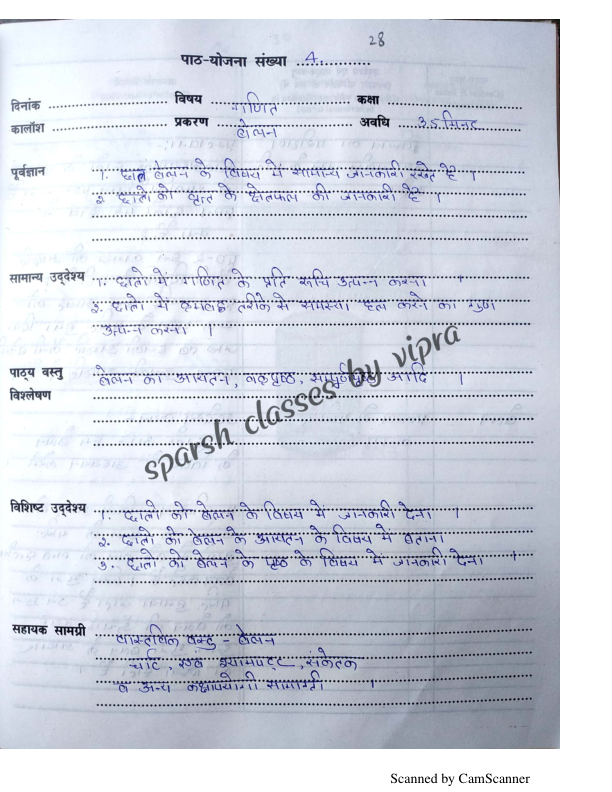 28
पाठ-योजना संख्या ..4............
दिनांक .............. विषय ... गणित ... कक्षा ..............
कालाँश .............. प्रकरण ... बेलन ... अवधि ... 35 मिनट
पूर्वज्ञान 1. छात्र बेलन के विषय में सामान्य जानकारी रखते है ।
2. छात्रो को वृत के क्षेत्रफल की जानकारी है ।
सामान्य उद्देश्य 1. छात्रो में गणित के प्रति रूचि उत्पन्न करना ।
2. छात्रो में क्रमबद्ध तरीके से समस्या हल करने का गुण
उत्पन्न करना ।
पाठ्य वस्तु बेलन का आयतन, वक्रपृष्ठ, सम्पूर्णपृष्ठ आदि ।
विश्लेषण
sparsh classes by vipra
विशिष्ट उद्देश्य 1. छात्रो को बेलन के विषय में जानकारी देना ।
2. छात्रो को बेलन के आयतन के विषय में बताना ।
3. छात्रो को बेलन के पृष्ठ के विषय में जानकारी देना ।
सहायक सामग्री वास्तविक वस्तु - बेलन
चार्ट, एवं श्यामपट्ट, संकेतक
व अन्य कक्षापयोगी सामाग्री ।
Scanned by CamScanner